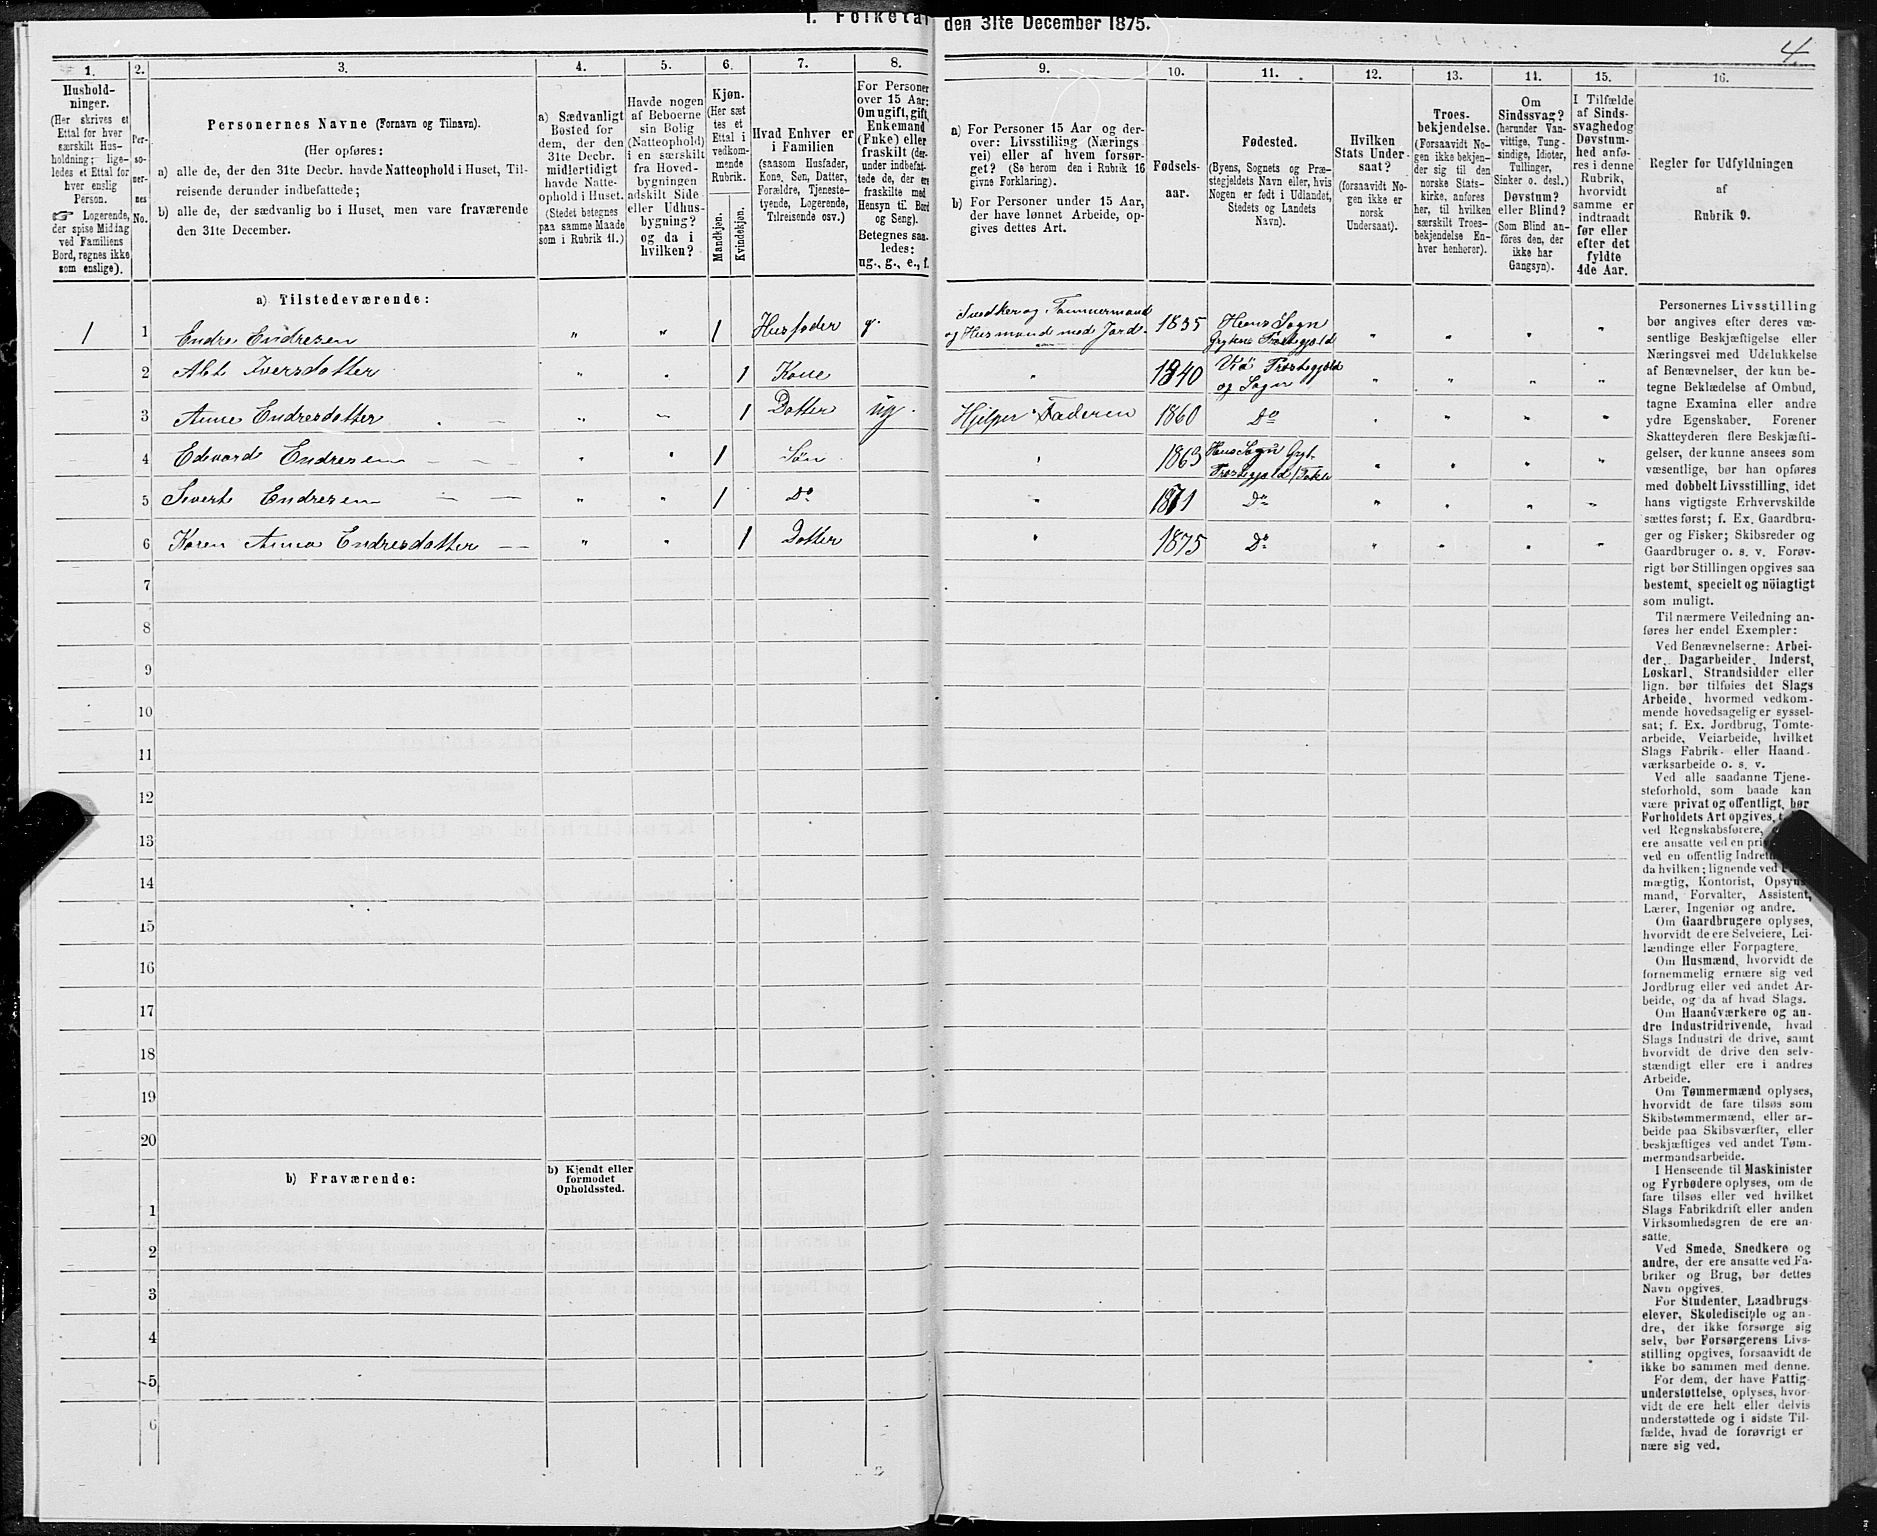 I. Folketal den 31te December 1875.
4.
1.
Hushold-
ninger.
(Her skrives et
Ettal for hver
særskilt Hus-
holdning; lige-
ledes et Ettal for
hver enslig
Person.
☞ Logerende,
der spise Middag
ved Familiens
Bord, regnes ikke
som enslige).
2.
Per-
so-
ner-
nes
No.
3.
Personernes Navne (Fornavn og Tilnavn).
(Her opføres:
a) alle de, der den 31te Decbr. havde Natteophold i Huset, Til-
reisende derunder indbefattede;
b) alle de, der sædvanlig bo i Huset, men vare fraværende
den 31te December.
4.
a) Sædvanligt
Bosted for
dem, der den
31te Decbr.
midlertidigt
havde Natte-
ophold i Huset.
(Stedet betegnes
paa samme Maade
som i Rubrik 11.)
5.
Havde nogen
af Beboerne
sin Bolig
(Natteophold)
i en særskilt
fra Hoved-
bygningen
adskilt Side
eller Udhus-
bygning?
og da i
hvilken?
6.
Kjøn.
(Her sæt
tes et
Ettal i
vedkom-
mende
Rubrik.
Mandkjøn.
Kvindekjøn.
7.
Hvad Enhver er
i Familien
(saasom Husfader,
Kone, Søn, Datter,
Forældre, Tjeneste-
tyende, Logerende,
Tilreisende osv.)
8.
For Personer
over 15 Aar:
Om ugift, gift,
Enkemand
(Enke) eller
fraskilt (der-
under indbefat-
tede de, der ere
fraskilte med
Hensyn til Bord
og Seng).
Betegnes saa-
ledes:
ug., g., e., f.
9.
a) For Personer 15 Aar og der-
over: Livsstilling (Nærings
vei) eller af hvem forsør-
get? (Se herom den i Rubrik 16
givne Forklaring).
b) For Personer under 15 Aar,
der have lønnet Arbeide, op-
gives dettes Art.
10.
Fødsels-
aar.
11.
Fødested.
(Byens, Sognets og Præ-
stegjeldets Navn eller, hvis
Nogen er født i Udlandet,
Stedets og Landets
Navn).
12.
Hvilken
Stats Under-
saat?
(forsaavidt No-
gen ikke er
norsk
Undersaat).
13.
Troes-
bekjendelse.
(Forsaavidt No-
gen ikke bekjen-
der sig til den
norske Stats-
kirke, anføres
her, til hvilken
særskilt Troes-
bekjendelse En-
hver henhører).
14.
Om
Sindssvag?
(herunder Van-
vittige, Tung-
sindige, Idioter,
Tullinger,
Sinker o. desl.)
Døvstum?
eller Blind?
(Som Blind an-
føres den, der
ikke har
Gangsyn).
15.
I Tilfælde
af Sinds-
svaghed og
Døvstum-
hed anfø-
res i denne
Rubrik,
hvorvidt
samme er
indtraadt
før eller
efter det
fyldte
4de Aar.
16.
Regler for Udfyldningen
af
Rubrik 9.
a) Tilstedeværende:
1 1 Endre Endresen " " 1 Husfader g. Snedker og Tømmermand og Husmand med Jord 1835 Hens Sogn Grytens Præstegjeld " " " "
2 Abt Iversdatter " " 1 Kone " 1840 Veö Præstegjeld og Sogn " " " "
3 Anne Endresdatter " " 1 Datter ug. Hjelper Faderen 1860 Do " " " "
4 Edvard Endresen " " 1 Søn " 1863 Hens Sogn Gryt. Præstegjeld " " " "
5 Sivert Endresen " " 1 Do " 1871 Do " " " "
6 Karen Anna Endresdatter " " 1 Datter " 1875 Do " " " "
7
8
9
10
11
12
13
14
15
16
17
18
19
20
b) Fraværende:
b) Kjendt eller
formodet
Opholdssted.
1
2
3
4
5
6
Personernes Livsstilling
bør angives efter deres væ-
sentlige Beskjæftigelse eller
Næringsvei med Udelukkelse
af Benævnelser, der kun be-
tegne Beklædelse af Ombud,
tagne Examina eller andre
ydre Egenskaber. Forener
Skatteyderen flere Beskjæfti-
gelser, der kunne ansees som
væsentlige, bør han opføres
med dobbelt Livsstilling, idet
hans vigtigste Erhvervskilde
sættes først; f. Ex. Gaardbru-
ger og Fisker; Skibsreder og
Gaardbruger o. s. v. Forøv-
rigt bør Stillingen opgives saa
bestemt, specielt og nöiagtigt
som muligt.
Til nærmere Veiledning an-
føres her endel Exempler:
Ved Benævnelserne: Arbei-
der, Dagarbeider, Inderst,
Løskarl, Strandsidder eller
lign. bør tilføies det Slags
Arbeide, hvormed vedkom-
mende hovedsagelig er syssel-
sat; f. Ex. Jordbrug, Tomte-
arbeide, Veiarbeide, hvilket
Slags Fabrik- eller Haand-
værksarbeide o. s. v.
Ved alle saadanne Tjene-
steforhold, som baade kan
være privat og offentligt, bør
Forholdets Art opgives,
ved Regnskabsførere,
ere ansatte ved en
ved en offentlig
da hvilken; lignende ved
mægtig, Kontorist, Opsyns-
mand, Forvalter, Assistent,
Lærer, Ingeniør og andre.
Om Gaardbrugere oplyses,
hvorvidt de ere Selveiere, Lei-
lændinge eller Forpagtere.
Om Husmænd, hvorvidt de
fornemmelig ernære sig ved
Jordbrug eller ved andet Ar-
beide, og da af hvad Slags.
Om Haandværkere og an-
dre Industridrivende, hvad
Slags Industri de drive, samt
hvorvidt de drive den selv-
stændigt eller ere i andres
Arbeide.
Om Tømmermænd oplyses,
hvorvidt de fare tilsøs som
Skibstømmermænd, eller ar-
beide paa Skibsværfter, eller
beskjæftiges ved andet Tøm-
mermandsarbeide.
I Henseende til Maskinister
og Fyrbødere oplyses, om de
fare tilsøs eller ved hvilket
Slags Fabrikdrift eller anden
Virksomhedsgren de ere an-
satte.
Ved Smede, Snedkere og
andre, der ere ansatte ved Fa-
briker og Brug, bør dettes
Navn opgives.
For Studenter, Landbrugs-
elever, Skoledisciple og an-
dre, der ikke forsørge sig
selv, bør Forsørgerens Livs-
stilling opgives, forsaavidt de
ikke bo sammen med denne.
For dem, der have Fattig-
understøttelse, oplyses, hvor-
vidt de ere helt eller delvis
understøttede og i sidste Til-
fælde, hvad de forøvrigt er
nære sig ved.